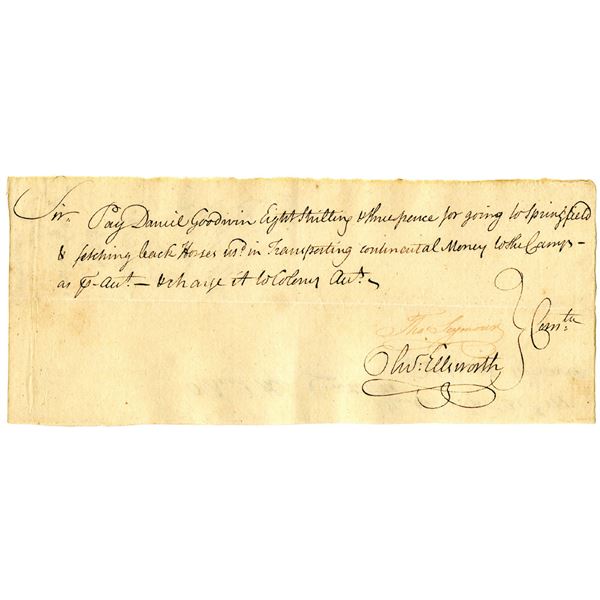 Sir, Pay Daniel Goodwin Eight Shilling & three pence for going to Springfield
& fetching back Horses us.d in Transporting continental Money to the Camp -
as pr Aut. — & charge it to Colony Aut.
Tho.s Seymour
Olivr. Ellsworth
Com.tee